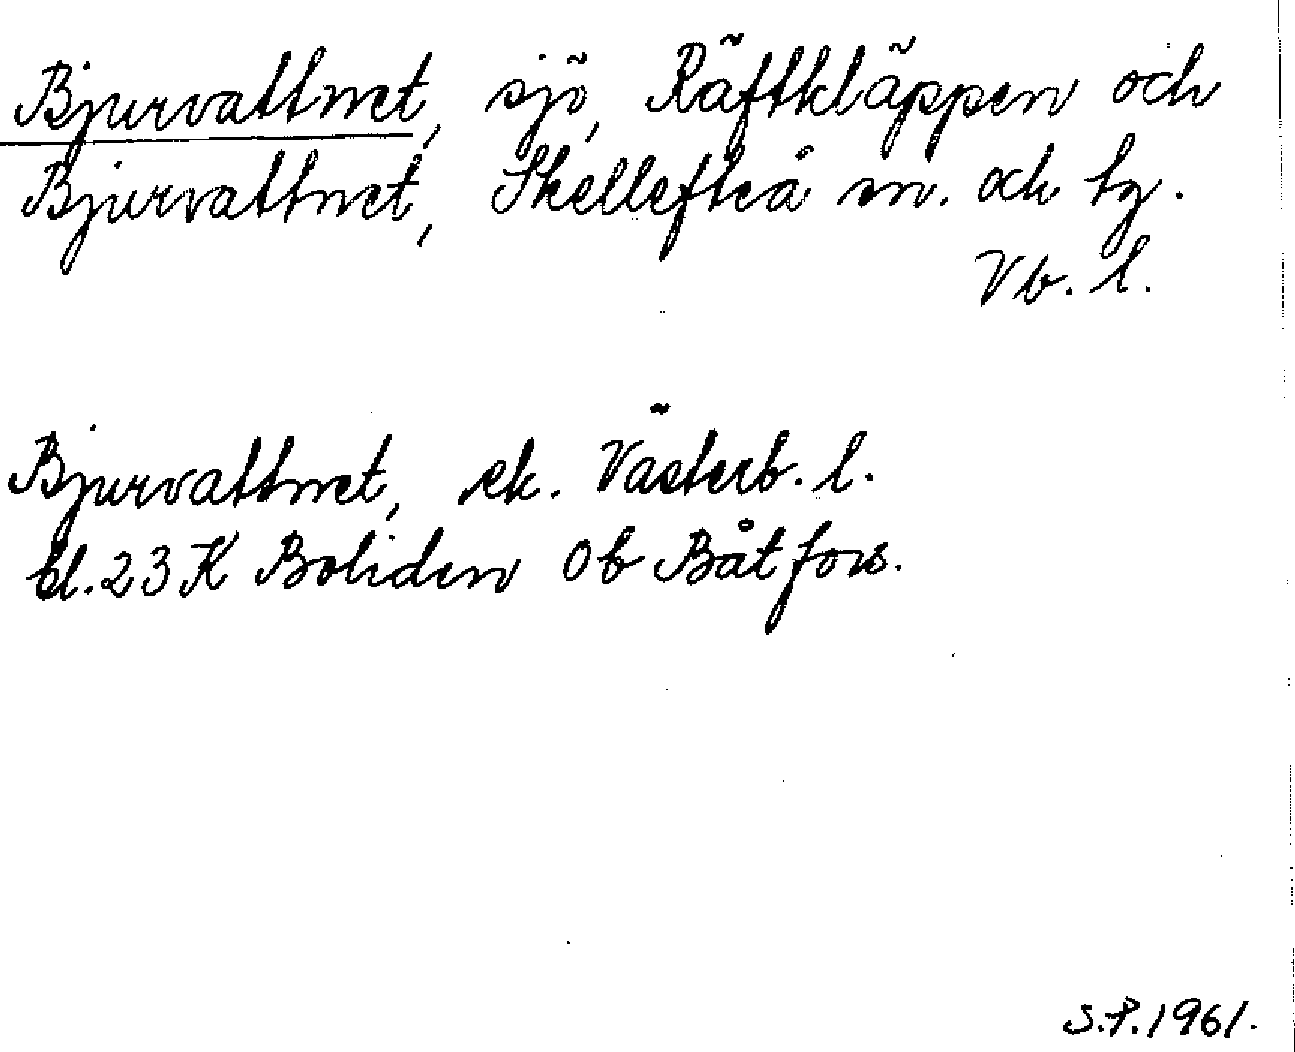 Bjurvattnet, sjö, Räftkläppen och
Bjurvattnet, Skellefteå sn. och tg.
Vb. l.
Bjurvattnet, ek. Västerb. l.
bl. 23 K Boliden 0b Båtfors.
S.P. 1961.